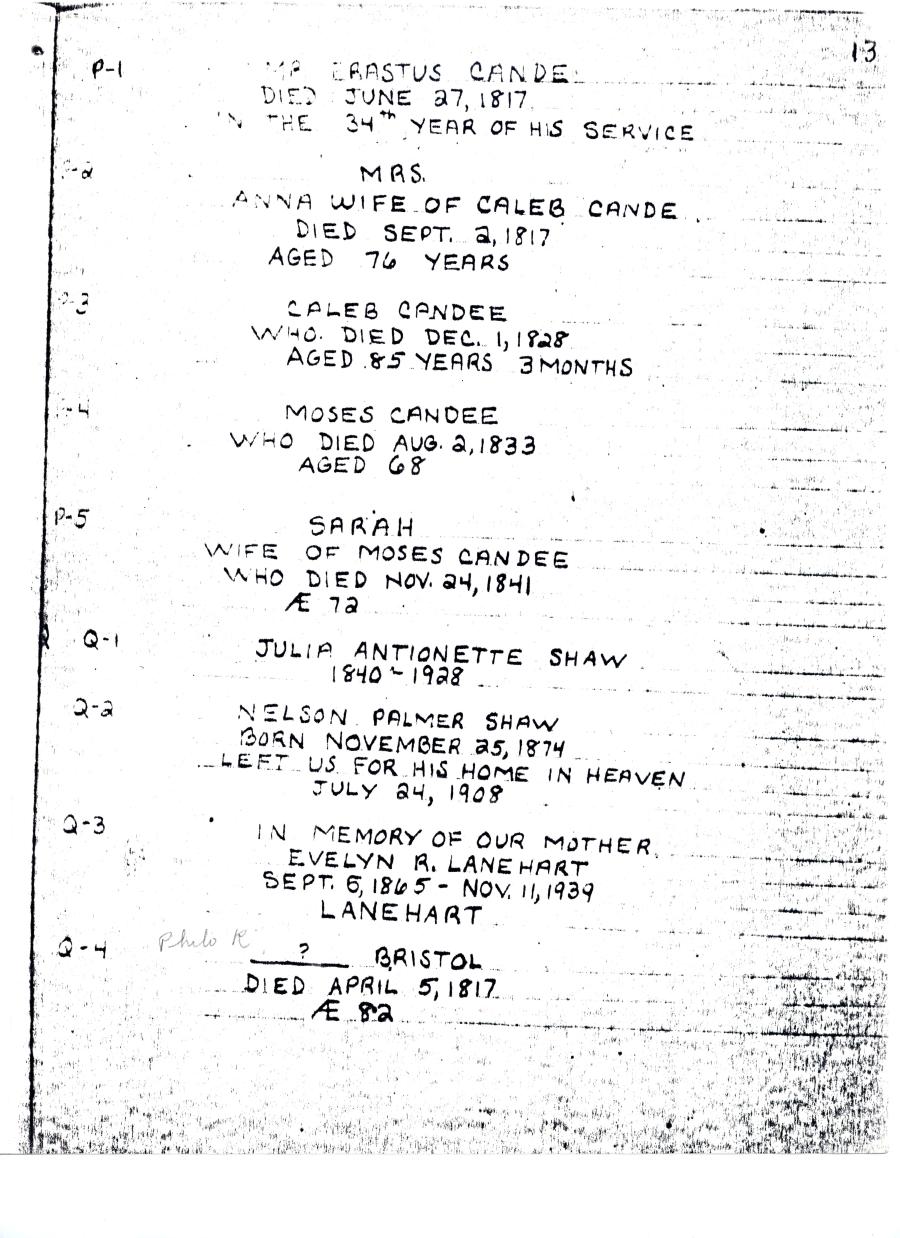 13
P-1 MR ERASTUS CANDE
DIED JUNE 27, 1817
IN THE 34th YEAR OF HIS SERVICE
P-2 MRS.
ANNA WIFE OF CALEB CANDE
DIED SEPT. 2, 1817
AGED 76 YEARS
P-3 CALEB CANDEE
WHO. DIED DEC. 1, 1828
AGED 85 YEARS 3 MONTHS
P-4 MOSES CANDEE
WHO DIED AUG. 2, 1833
AGED 68
P-5 SARAH
WIFE OF MOSES CANDEE
WHO DIED NOV. 24, 1841
Æ 72
Q-1 JULIA ANTIONETTE SHAW
1840 - 1928
Q-2 NELSON PALMER SHAW
BORN NOVEMBER 25, 1874
LEFT US FOR HIS HOME IN HEAVEN
JULY 24, 1908
Q-3 IN MEMORY OF OUR MOTHER
EVELYN R. LANEHART
SEPT. 6, 1865 - NOV. 11, 1939
LANEHART
Q-4 Philo R ? BRISTOL
DIED APRIL 5, 1817
Æ 82